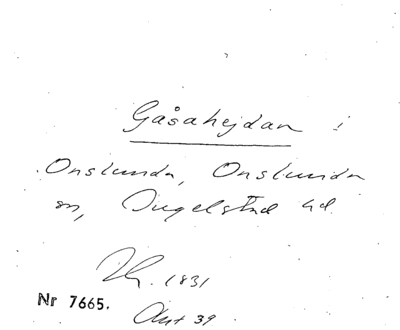 Gåsahejdan !
Onslunda, Onslunda
sn, Ingelstad hd
1831
Nr 7665.
Akt 39